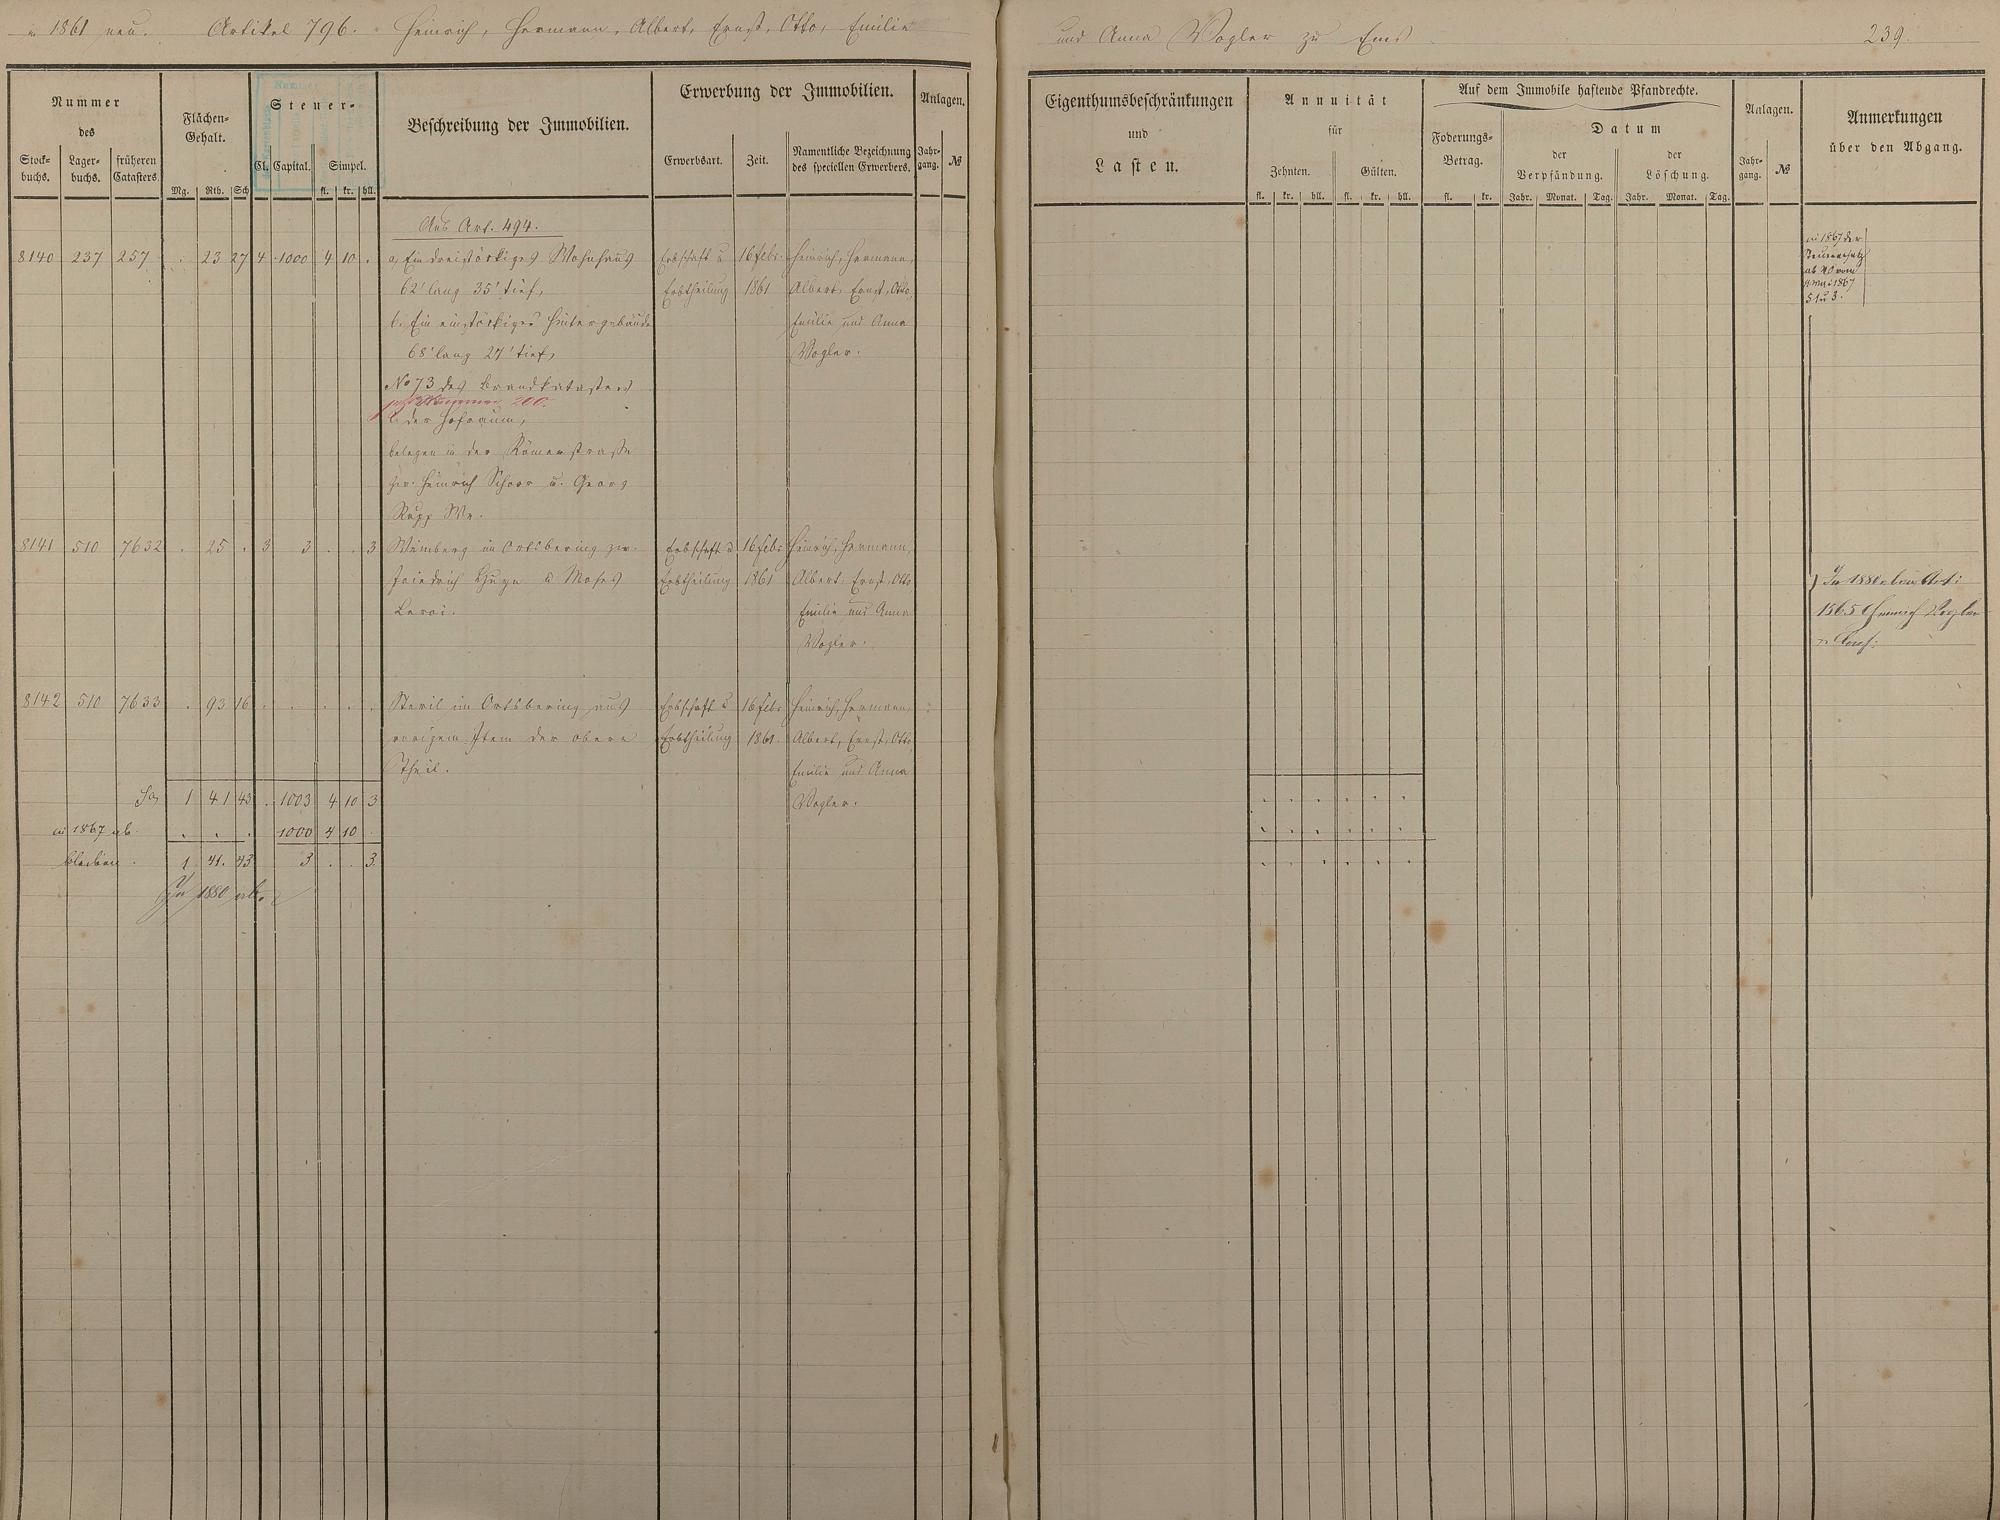 1861 neu. Artikel 796. Heinrich, Hermann, Albert, Ernst, Otto, Emilie
und Anna Vogler zu Ems 239.
Nummer
des
Stock-
buchs.
Lager-
buchs.
früheren
Catasters
Flächen-
Gehalt.
Mg. Rth. Sch
Steuer-
Cl. Capital. Simpel.
fl. kr. hll.
Beschreibung der Immobilien.
Erwerbung der Immobilien.
Erwerbsart. Zeit.
Namentliche Bezeichnung
des speciellen Erwerbers.
Anlagen.
Jahr-
gang.
№
Eigenthumsbeschränkungen
und
Lasten.
Annuität
für
Zehnten. Gülten.
fl. kr. hll. fl. kr. hll.
Auf dem Immobile haftende Pfandrechte.
Foderungs-
Betrag.
fl. kr.
Datum
der
Verpfändung.
der
Löschung.
Jahr. Monat. Tag. Jahr. Monat. Tag.
Anlagen.
Jahr-
gang.
№
Anmerkungen
über den Abgang.
Aus Art. 494.
8140 237 257 . 23 27 4 1000 4 10 . a, Ein dreistöckiges Wohnhaus Erbschaft u 16 Febr. Heinrich, Hermann,
62' lang 35' tief, Erbtheilung 1861 Albert, Ernst, Otto,
b. Ein einstöckiges Hintergebäude Emilie und Anna
68' lang 27' tief, Vogler.
No 73 des Brandkatasters
200.
c. der Hofraum,
belegen in der Römerstraße
zw. Heinrich Schorr u. Georg
Rupp We.
in 1867 der
ab
1867
§ 1 u 3.
8141 510 7632 . 25 . 3 3 . . 3 Weinberg im Ortsbering zw. Erbschaft u 16 Febr Heinrich, Hermann,
Friedrich u Moses Erbtheilung 1861 Albert, Ernst, Otto
Leroi. Emilie und Anna
Vogler.
In 1880 Art:
1865 Heinrich Vogler
8142 510 7633 . 93 16 . . . . . Steril im Ortsbering aus Erbschaft u 16 Febr Heinrich, Hermann,
vorigem Item der obere Erbtheilung 1861. Albert, Ernst, Otto
Theil. Emilie und Anna
Vogler.
Sa 1 41 43 . 1003 4 10 3
in 1867 ab . . . 1000 4 10 .
bleiben. 1 41. 43 3 . . 3.
In 1880 ab.